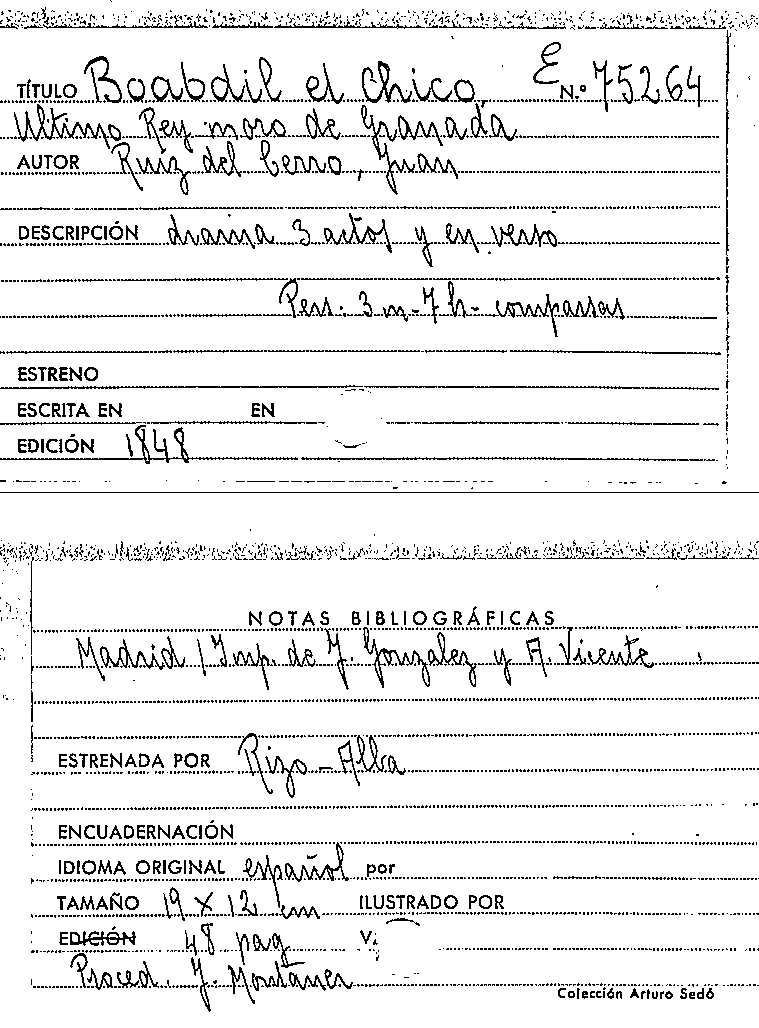 TÍTULO Boabdil el Chico, E N.º 75264
Ultimo Rey moro de Granada
AUTOR Ruiz del Cerro, Juan
DESCRIPCIÓN drama 3 actos y en verso
Pers. 3 m- 7 h- comparsas
ESTRENO
ESCRITA EN EN
EDICIÓN 1848
NOTAS BIBLIOGRÁFICAS
Madrid / Imp. de J. Gonzalez y A. Vicente
ESTRENADA POR Rizo - Alba
ENCUADERNACIÓN
IDIOMA ORIGINAL español por
TAMAÑO 19 x 12 cm ILUSTRADO POR
EDICIÓN 48 pag V.
Proced. J. Montaner
Colección Arturo Sedó